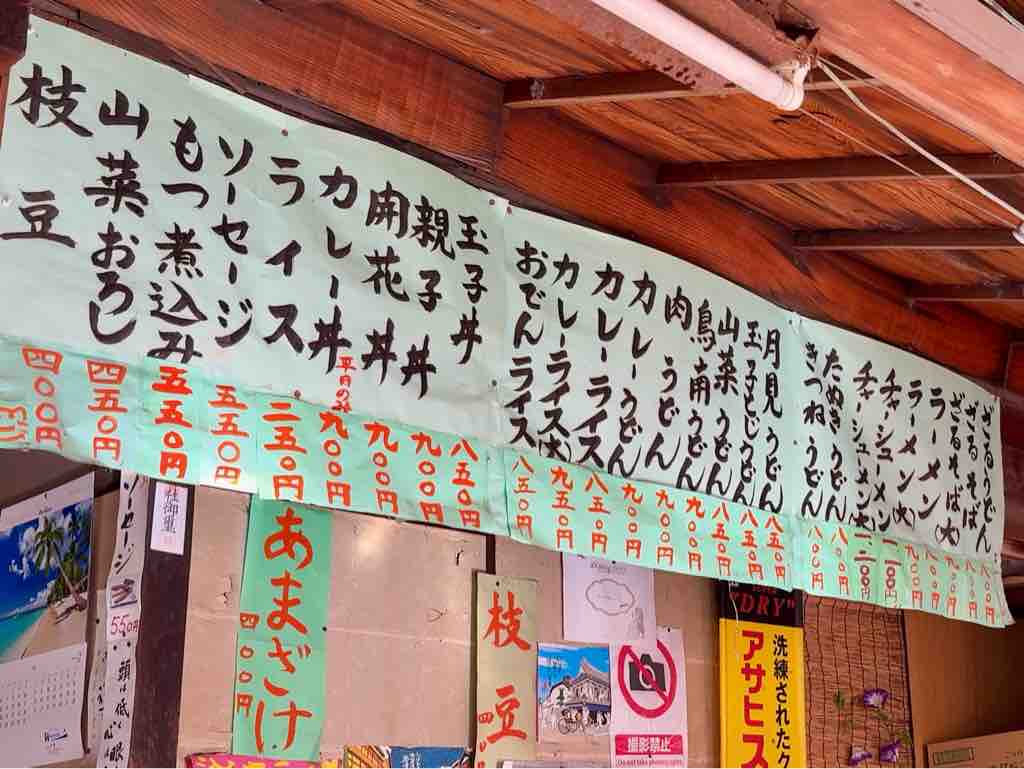 ざるうどん 八五〇円
ざるそば 八五〇円
ざるそば(大)
ラーメン 八〇〇円
ラーメン(大) 九〇〇円
チャーシューメン 一一〇〇円
チャーシューメン(大) 一二〇〇円
たぬきうどん 八〇〇円
きつねうどん 八〇〇円
月見うどん 八五〇円
玉子とじうどん 八五〇円
山菜うどん 八五〇円
鳥南うどん 九〇〇円
肉うどん 九〇〇円
カレーうどん 九〇〇円
カレーライス 八五〇円
カレーライス(大) 九五〇円
おでんライス 八五〇円
玉子丼 八五〇円
親子丼 九〇〇円
開花丼 九〇〇円
カレー丼 平日のみ 九〇〇円
ライス 二五〇円
ソーセージ 五五〇円
もつ煮込み 五五〇円
山菜おろし 四五〇円
枝豆 四〇〇円
"DRY"
洗練されたク
アサヒス
撮影禁止
Do not take photographs
枝豆
四
あまざけ
四〇〇円
ソーセージ
550円
頭は低く